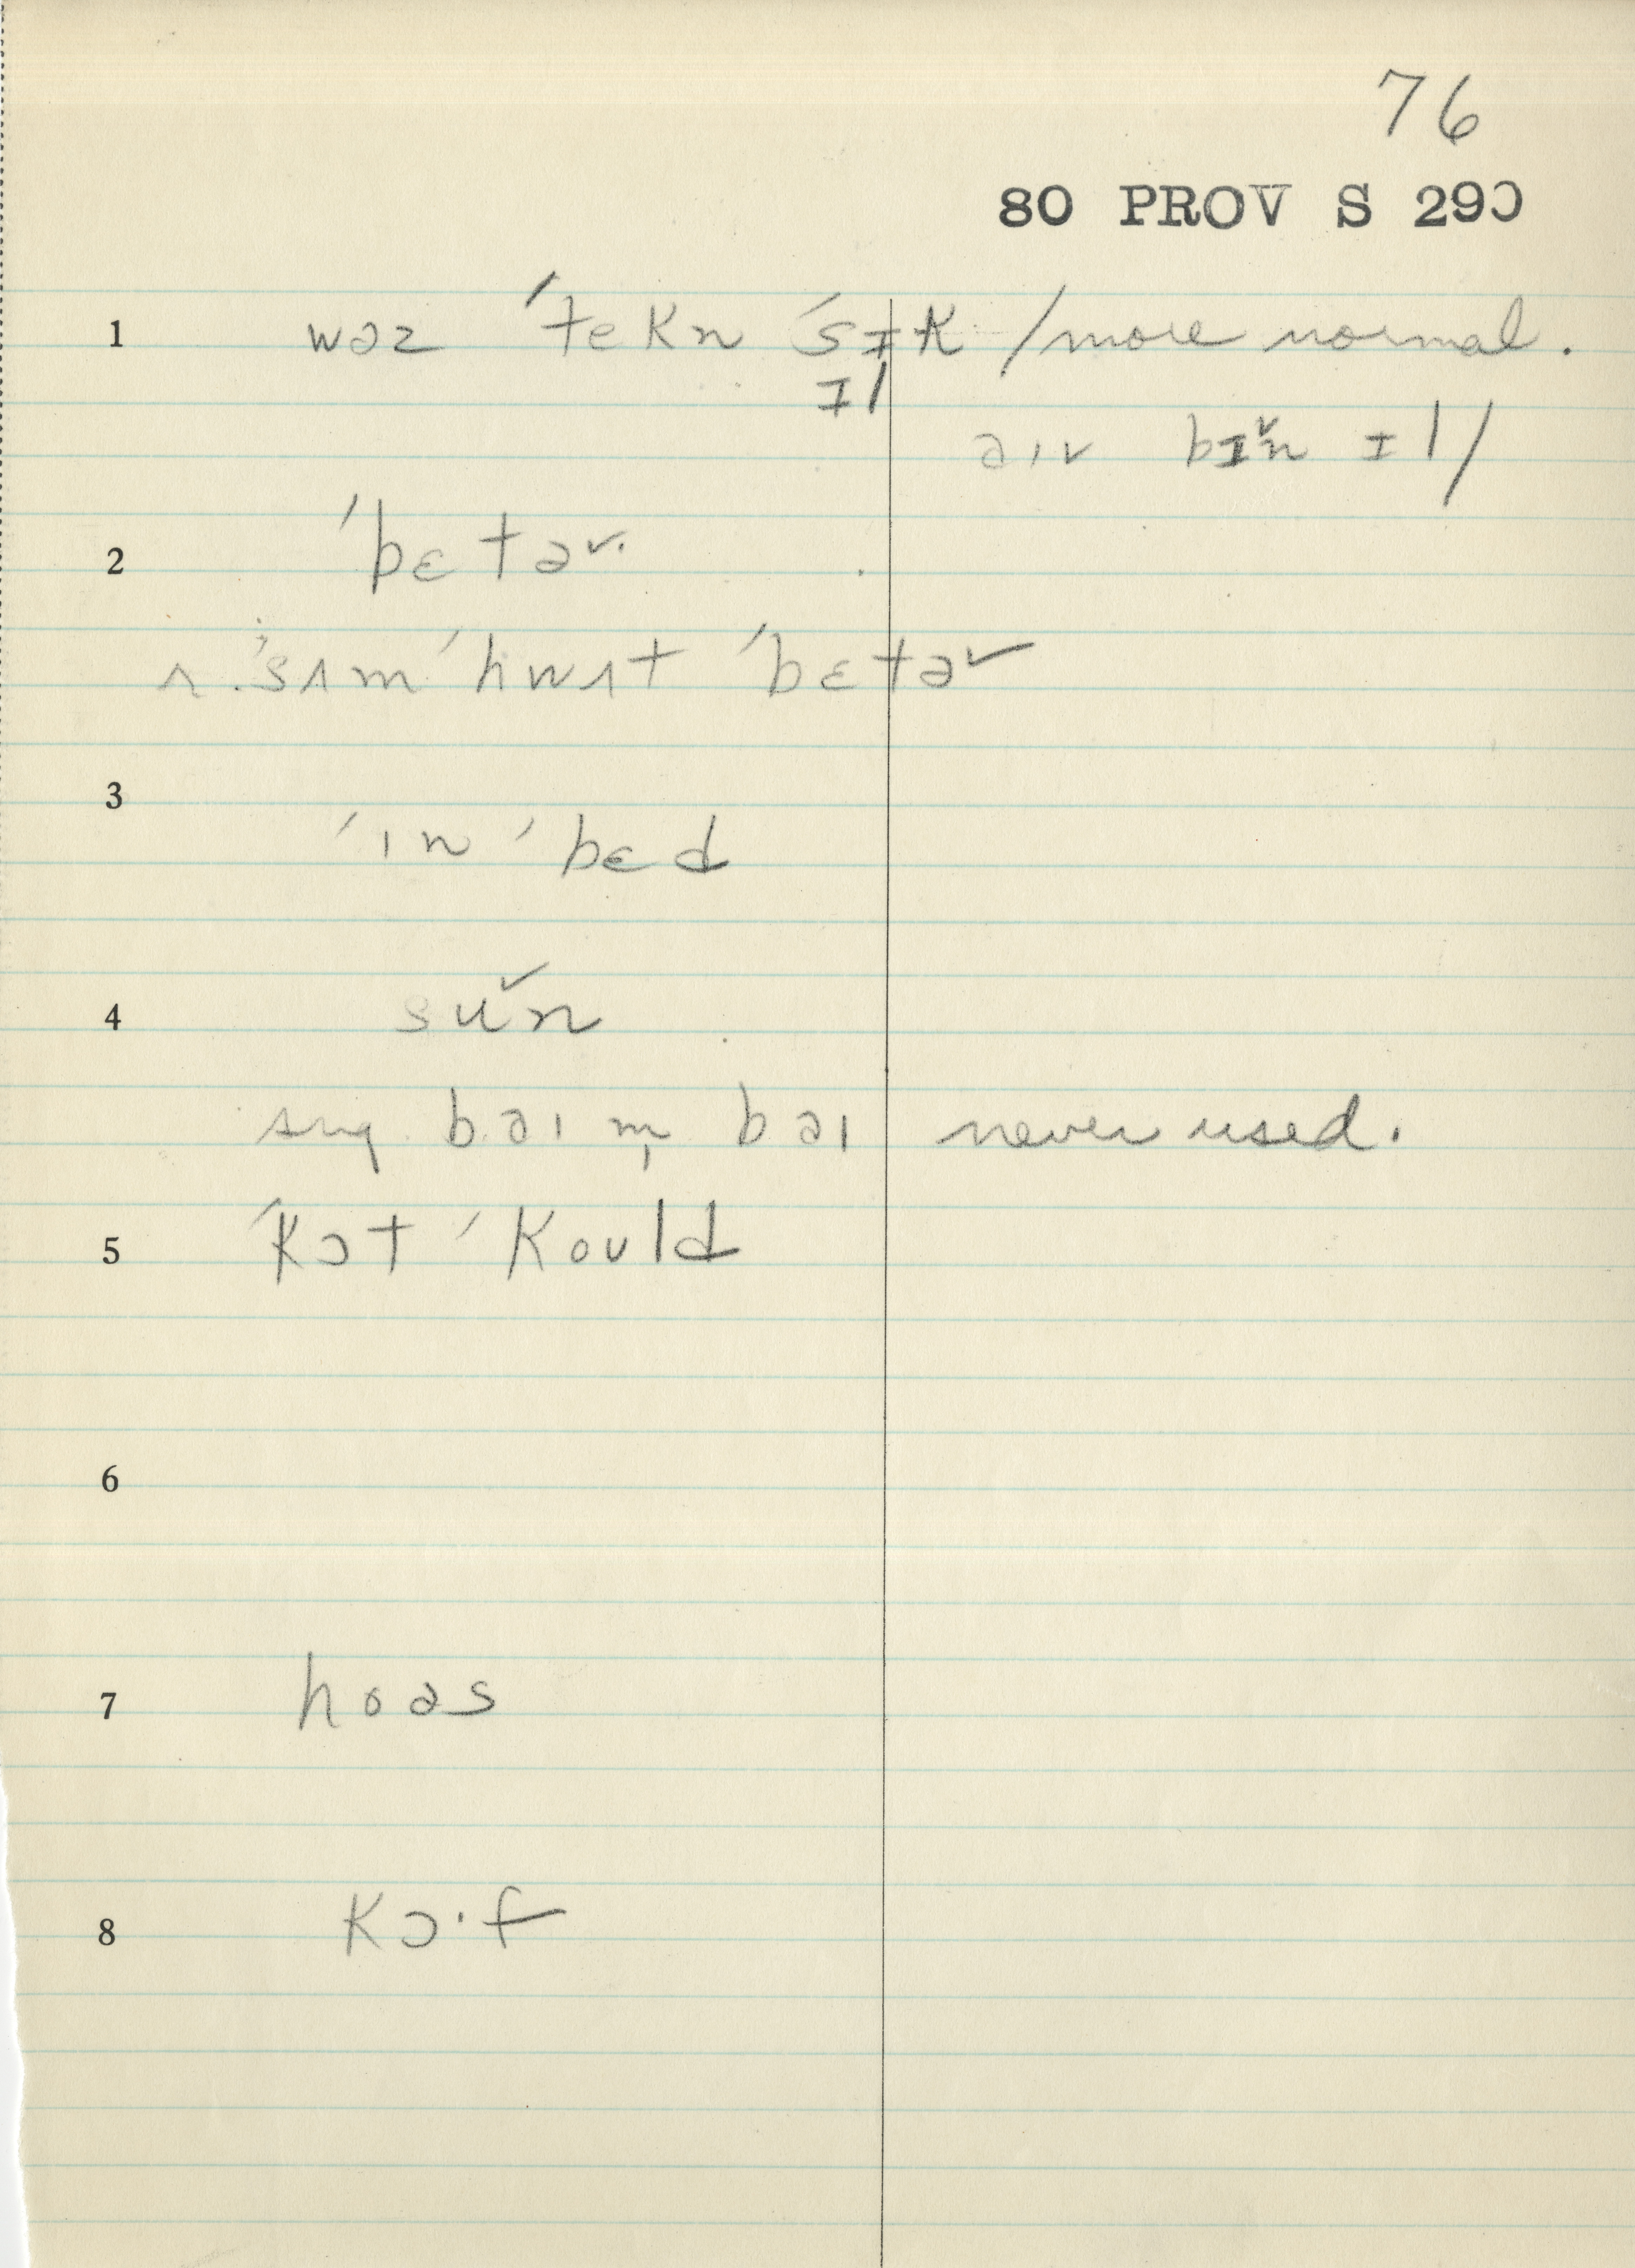 76
80 PROV S 290
1 wəz ˈtekn ˈsɪk / more normal.
ɪl
əɪv bɪ˅n ɪl /
2 ˈbɛtə˅.
r. ˈsʌm ˈhwʌt ˈbɛtə˅
3
ˈɪn ˈbɛd
4 su˅n
sug. bəɪ m̩ bəɪ never used.
5 ˈkɔt ˈkould
6
7 hoəs
8 kɔ·f